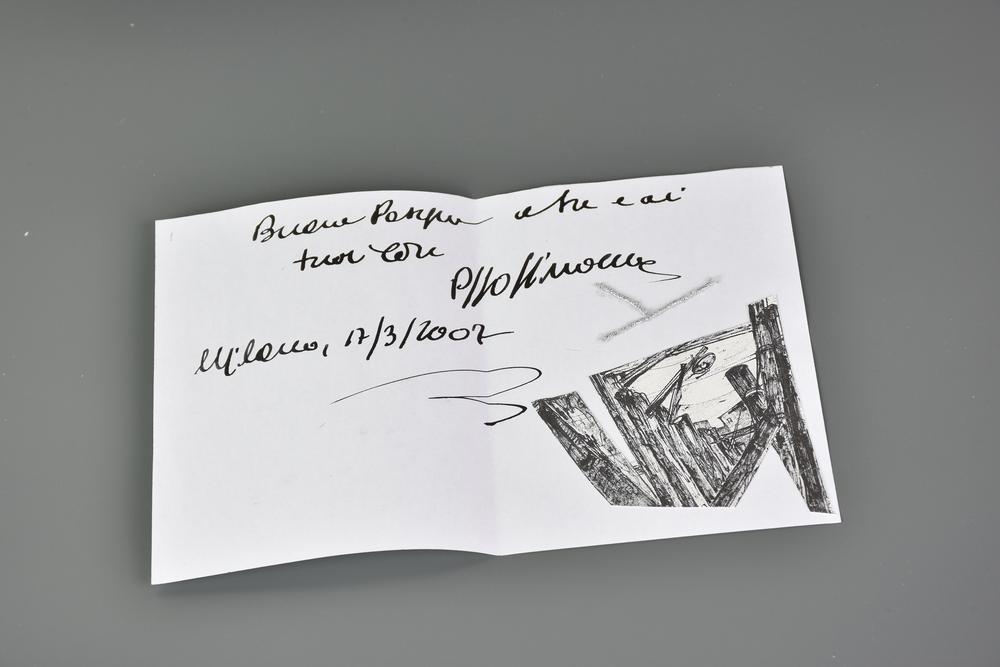 Buona Pasqua a te e ai
tuoi cari
Milano, 17/3/2002